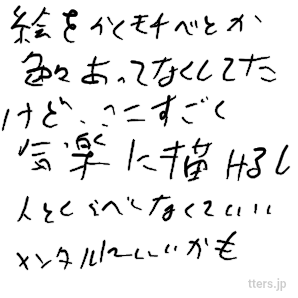 絵をかくモチベとか
色々あってなくしてた
けど、ここすごく
気楽に描けるし
人とくらべなくていいし
メンタルにいいかも
tters.jp